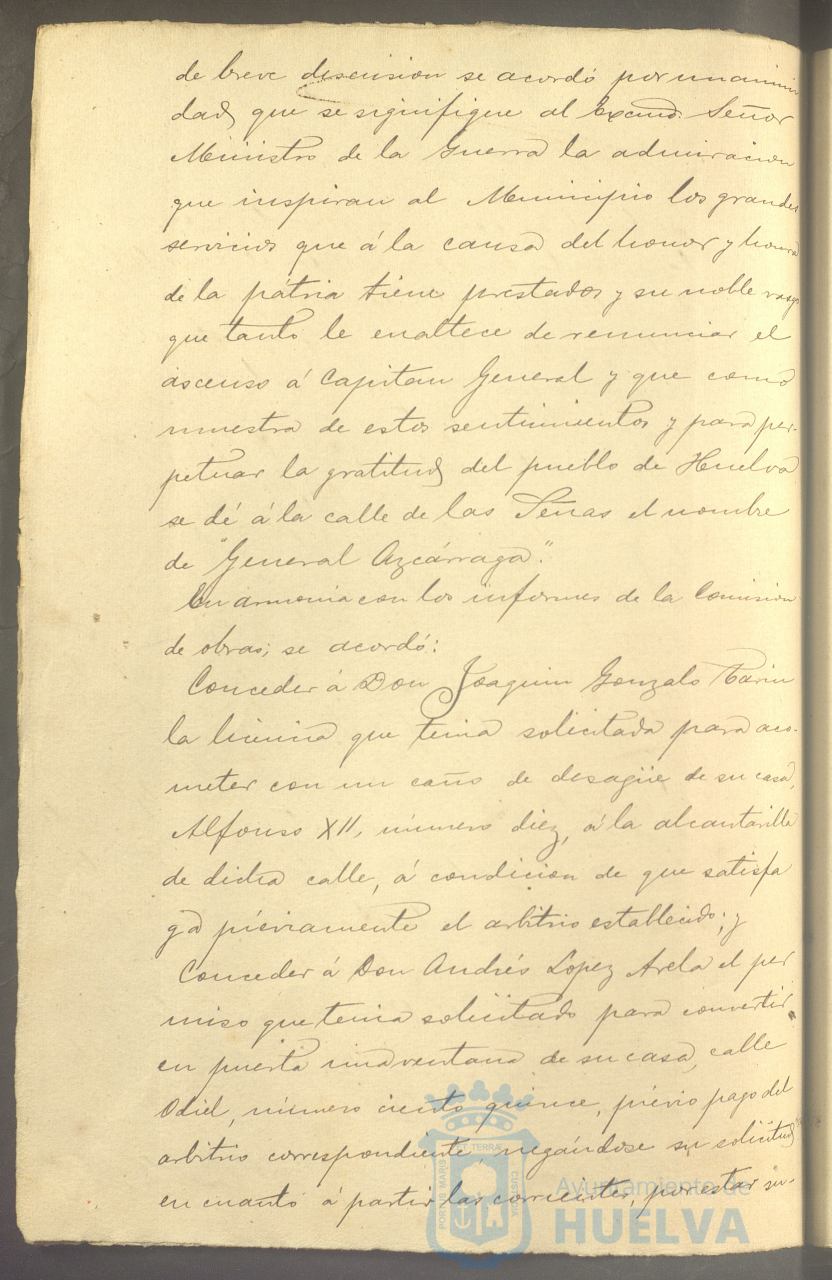 de breve discusion se acordó por unanimi
dad, que se signifique al Excmo. Señor
Ministro de la Guerra la admiracion
que inspiran al Municipio los grandes
servicios que á la causa del honor y honra
de la pátria tiene prestados y su noble rasgo
que tanto le enaltece de renunciar el
ascenso á Capitan General y que como
muestra de estos sentimientos y para per-
petuar la gratitud del pueblo de Huelva
se dé á la calle de las Señas el nombre
de "General Azcárraga".
En armonia con los informes de la Comision
de obras; se acordó:
Conceder á Don Joaquin Gonzalo Tarin
la licencia que tenia solicitada para aco-
meter con un caño de desagüe de su casa,
Alfonso XII, número diez, á la alcantarilla
de dicha calle, á condicion de que satisfa
ga préviamente el arbitrio establecido; y
Conceder á Don Andrés Lopez Arela el per
miso que tenia solicitado para convertir
en puerta una ventana de su casa, calle
Odiel, número ciento quince, prévio pago del
arbitrio correspondiente, negándose su solicitud
en cuanto á partir las corrientes, por estar su-
PORTUS MARIS ET TERRAE CUSTODIA
Ayuntamiento de
HUELVA